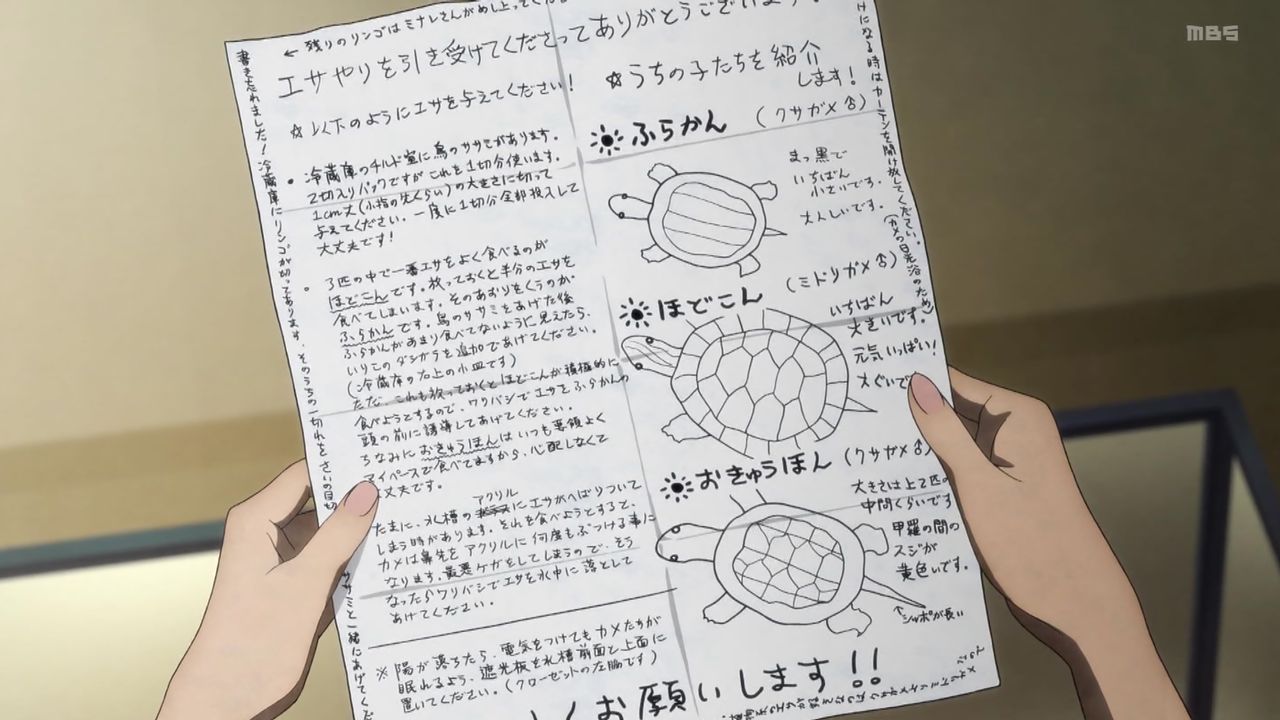 MBS
← 残りのリンゴはミナレさんがめし上ってくだ
エサやりを引き受けてくださってありがとうございます!
☆以下のようにエサを与えてください!
・冷蔵庫のチルド室に鳥のササミがあります。
2切入りパックですがこれを1切分使います。
1cm大(小指の先くらい)の大きさに切って
与えてください。一度に1切分全部投入して
大丈夫です!
・3匹の中で一番エサをよく食べるのが
ほどこんです。放っておくと半分のエサを
食べてしまいます。そのあおりをくうのが
ふらかんです。鳥のササミをあげた後
ふらかんがあまり食べてないように見えたら、
いりこのダシガラを追加であげてください。
(冷蔵庫の右上の小皿です)
ただ、これも放っておくとほどこんが積極的に
食べようとするので、ワリバシでエサをふらかんの
頭の前に誘導してあげてください。
ちなみにおきゅうほんはいつも要領よく
マイペースで食べてますから、心配しなくて
丈夫です。
アクリル
たまに、水槽の にエサがへばりついて
しまう時があります。それを食べようとすると、
カメは鼻先をアクリルに何度もぶつける事に
なります。最悪ケガをしてしまうので、そう
なったらワリバシでエサを水中に落として
あげてください。
※陽が落ちたら、電気をつけてもカメたちが
眠れるよう、遮光板を水槽前面と上面に
置いてください。(クローゼットの左脇です)
☆うちの子たちを紹介
します!
ふらかん (クサガメ♂)
まっ黒で
いちばん
小さいです。
大人しいです。
ほどこん (ミドリガメ♂)
いちばん
大きいです。
元気いっぱい!
大ぐいで
おきゅうほん (クサガメ♂)
大きさは上2匹の
中間くらいです
甲羅の間の
スジが
黄色いです。
↑シッポが長い
しくお願いします!!
けになる時はカーテンを開け放してください。
(カメの日光浴のため)
書きたれました!冷蔵庫にリンゴが切ってあります。そのうちの一切れをさいの目切
ササミと一緒にあげてくだ